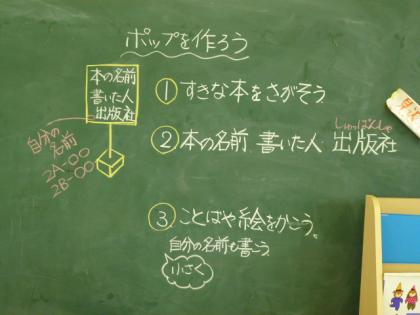 ポップを作ろう
本の名前
書いた人
出版社
自分の
名前
2A-○○
2B-○○
① すきな本をさがそう
② 本の名前 書いた人 出版社
しゅっぱんしゃ
③ ことばや絵をかこう。
自分の名前も書こう
小さく